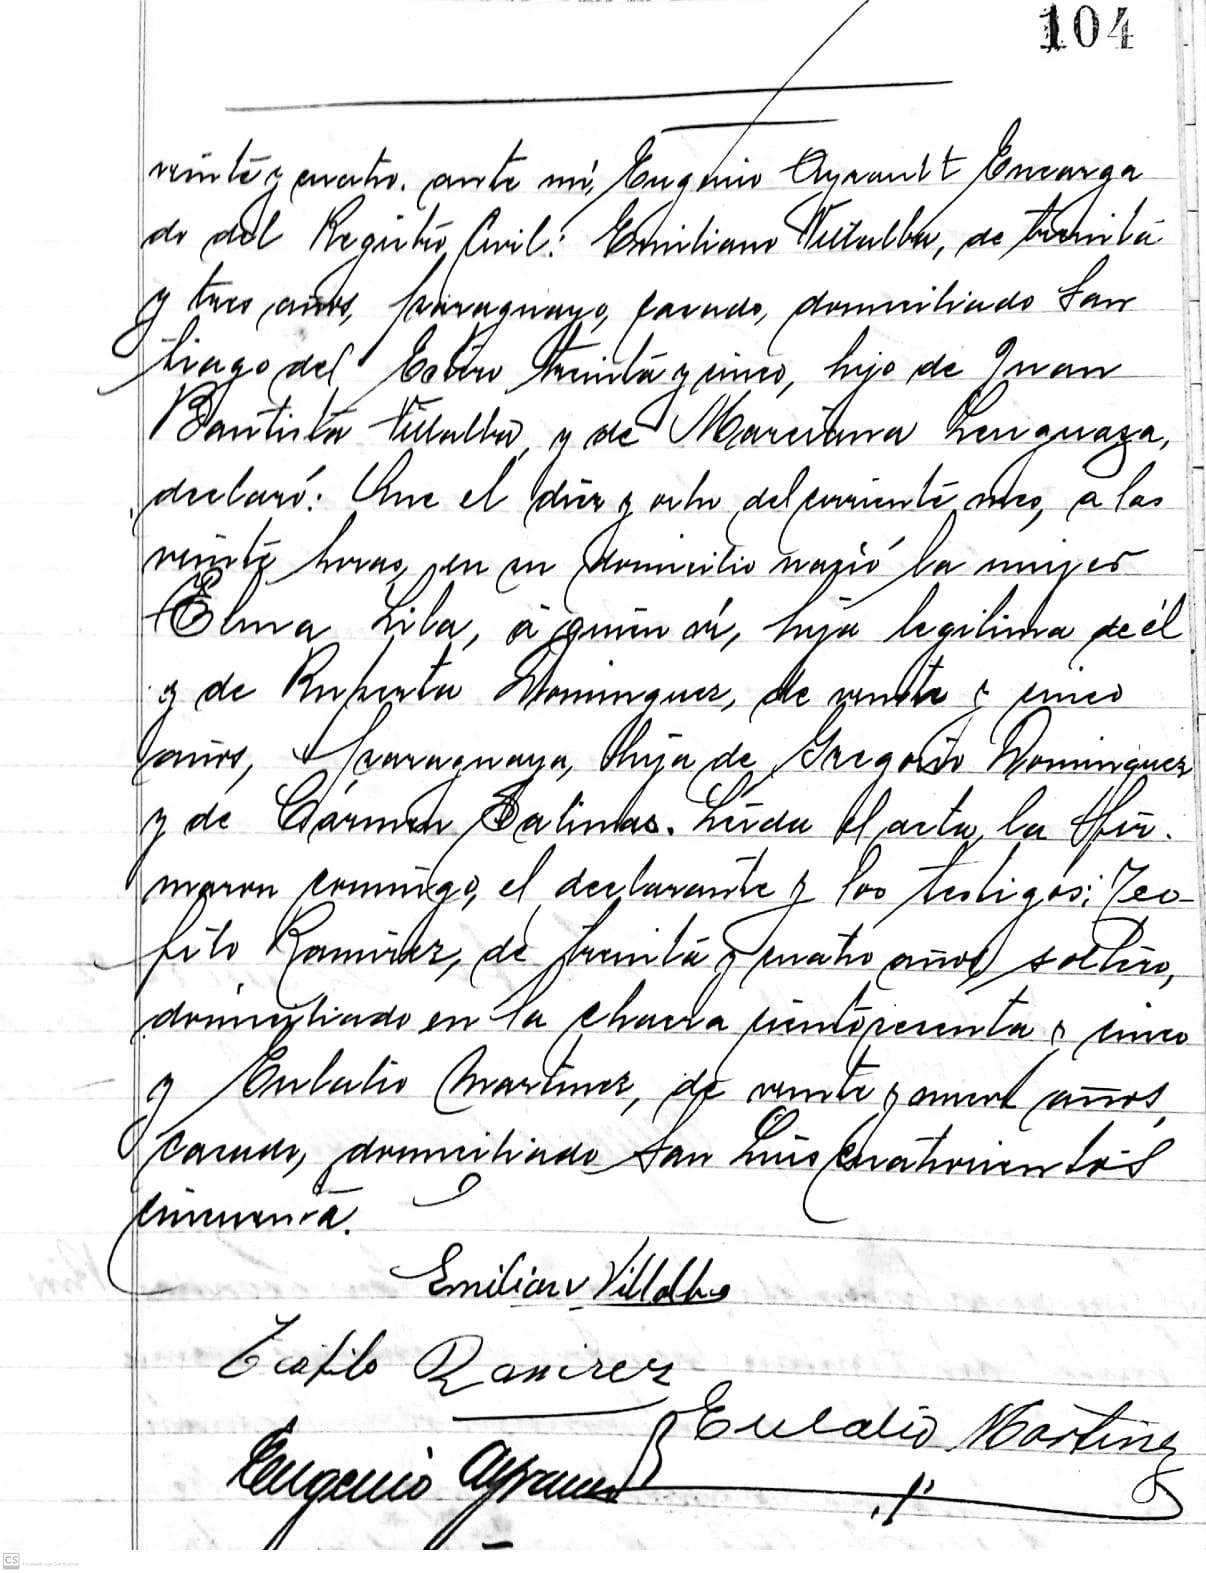 104
veinte y cuatro. ante mi, Eugenio Ayrault Encarga
do del Registro Civil: Emiliano Villalba, de treinta
y tres años, paraguayo, casado, domiciliado San
tiago del Estero treinta y cinco, hijo de Juan
Bautista Villalba, y de Marciana Lenguaza,
declaró: Que el diez y ocho del corriente mes, a las
veinte horas, en su domicilio nació la mujer
Elma Lila, á quien vi, hija legitima de él
y de Ruperta Dominguez, de veinte y cinco
años, paraguaya, hija de Gregorio Dominguez
y de Cármen Salinas. Leida el acta, la fir-
maron comigo, el declarante y los testigos: Teo-
filo Ramirez, de treinta y cuatro años, soltero,
domiciliado en la chacra ciento sesenta y cinco
y Eulalio Martinez, de veinte y nueve años,
casado, domiciliado San Luis cuatrocientos
cincuenta.
Emiliano Villalba
Teofilo Ramirez
Eulalio Martinez
Eugenio Ayrault
CS